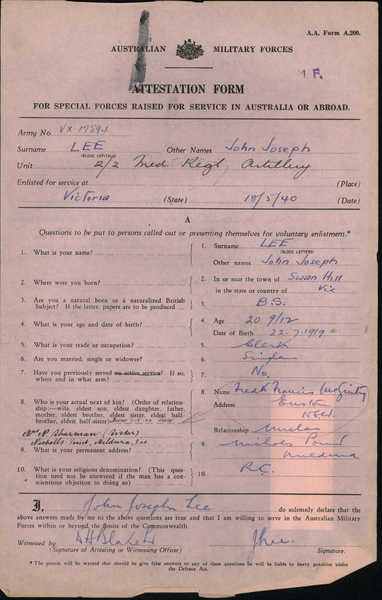 A.A. Form A.200.
AUSTRALIAN MILITARY FORCES
ATTESTATION FORM
FOR SPECIAL FORCES RAISED FOR SERVICE IN AUSTRALIA OR ABROAD.
Army No.
Surname LEE Other Names John Joseph
(BLOCK CAPITALS)
Unit 2/2 Med. Regt, Artillery
Enlisted for service at (Place)
Victoria (State) 18/5/40 (Date)
A
Questions to be put to persons called out or presenting themselves for voluntary enlistment.*
1. What is your name? 1. Surname LEE
(BLOCK LETTERS)
Other names John Joseph
2. Where were you born? 2. In or near the town of Swan Hill
in the state or country of Vic
3. Are you a natural born or a naturalized British Subject? If the latter, papers are to be produced 3. B.S.
4. What is your age and date of birth? 4. Age 20 9/12
Date of Birth 22-7-1919
5. What is your trade or occupation? 5. Clerk
6. Are you married, single or widower? 6. Single
7. Have you previously served on active service? If so, where and in what arm? 7. No.
8. Who is your actual next of kin? (Order of relationship:—wife, eldest son, eldest daughter, father, mother, eldest brother, eldest sister, eldest half-brother, eldest half-sister) 8.
Address Euston
N.S.W.
Mrs Sherman (Sister)
Nicholls Point, Mildura, Vic
Relationship Uncle
9. What is your permanent address? 9. Nichols Point
Mildura
10. What is your religious denomination? (This question need not be answered if the man has a conscientious objection to doing so) 10. R.C.
I, John Joseph Lee do solemnly declare that the
above answers made by me to the above questions are true and that I am willing to serve in the Australian Military
Forces within or beyond the limits of the Commonwealth.
Witnessed by
(Signature of Attesting or Witnessing Officer) Signature.
* The person will be warned that should he give false answers to any of these questions he will be liable to heavy penalties under
the Defence Act.